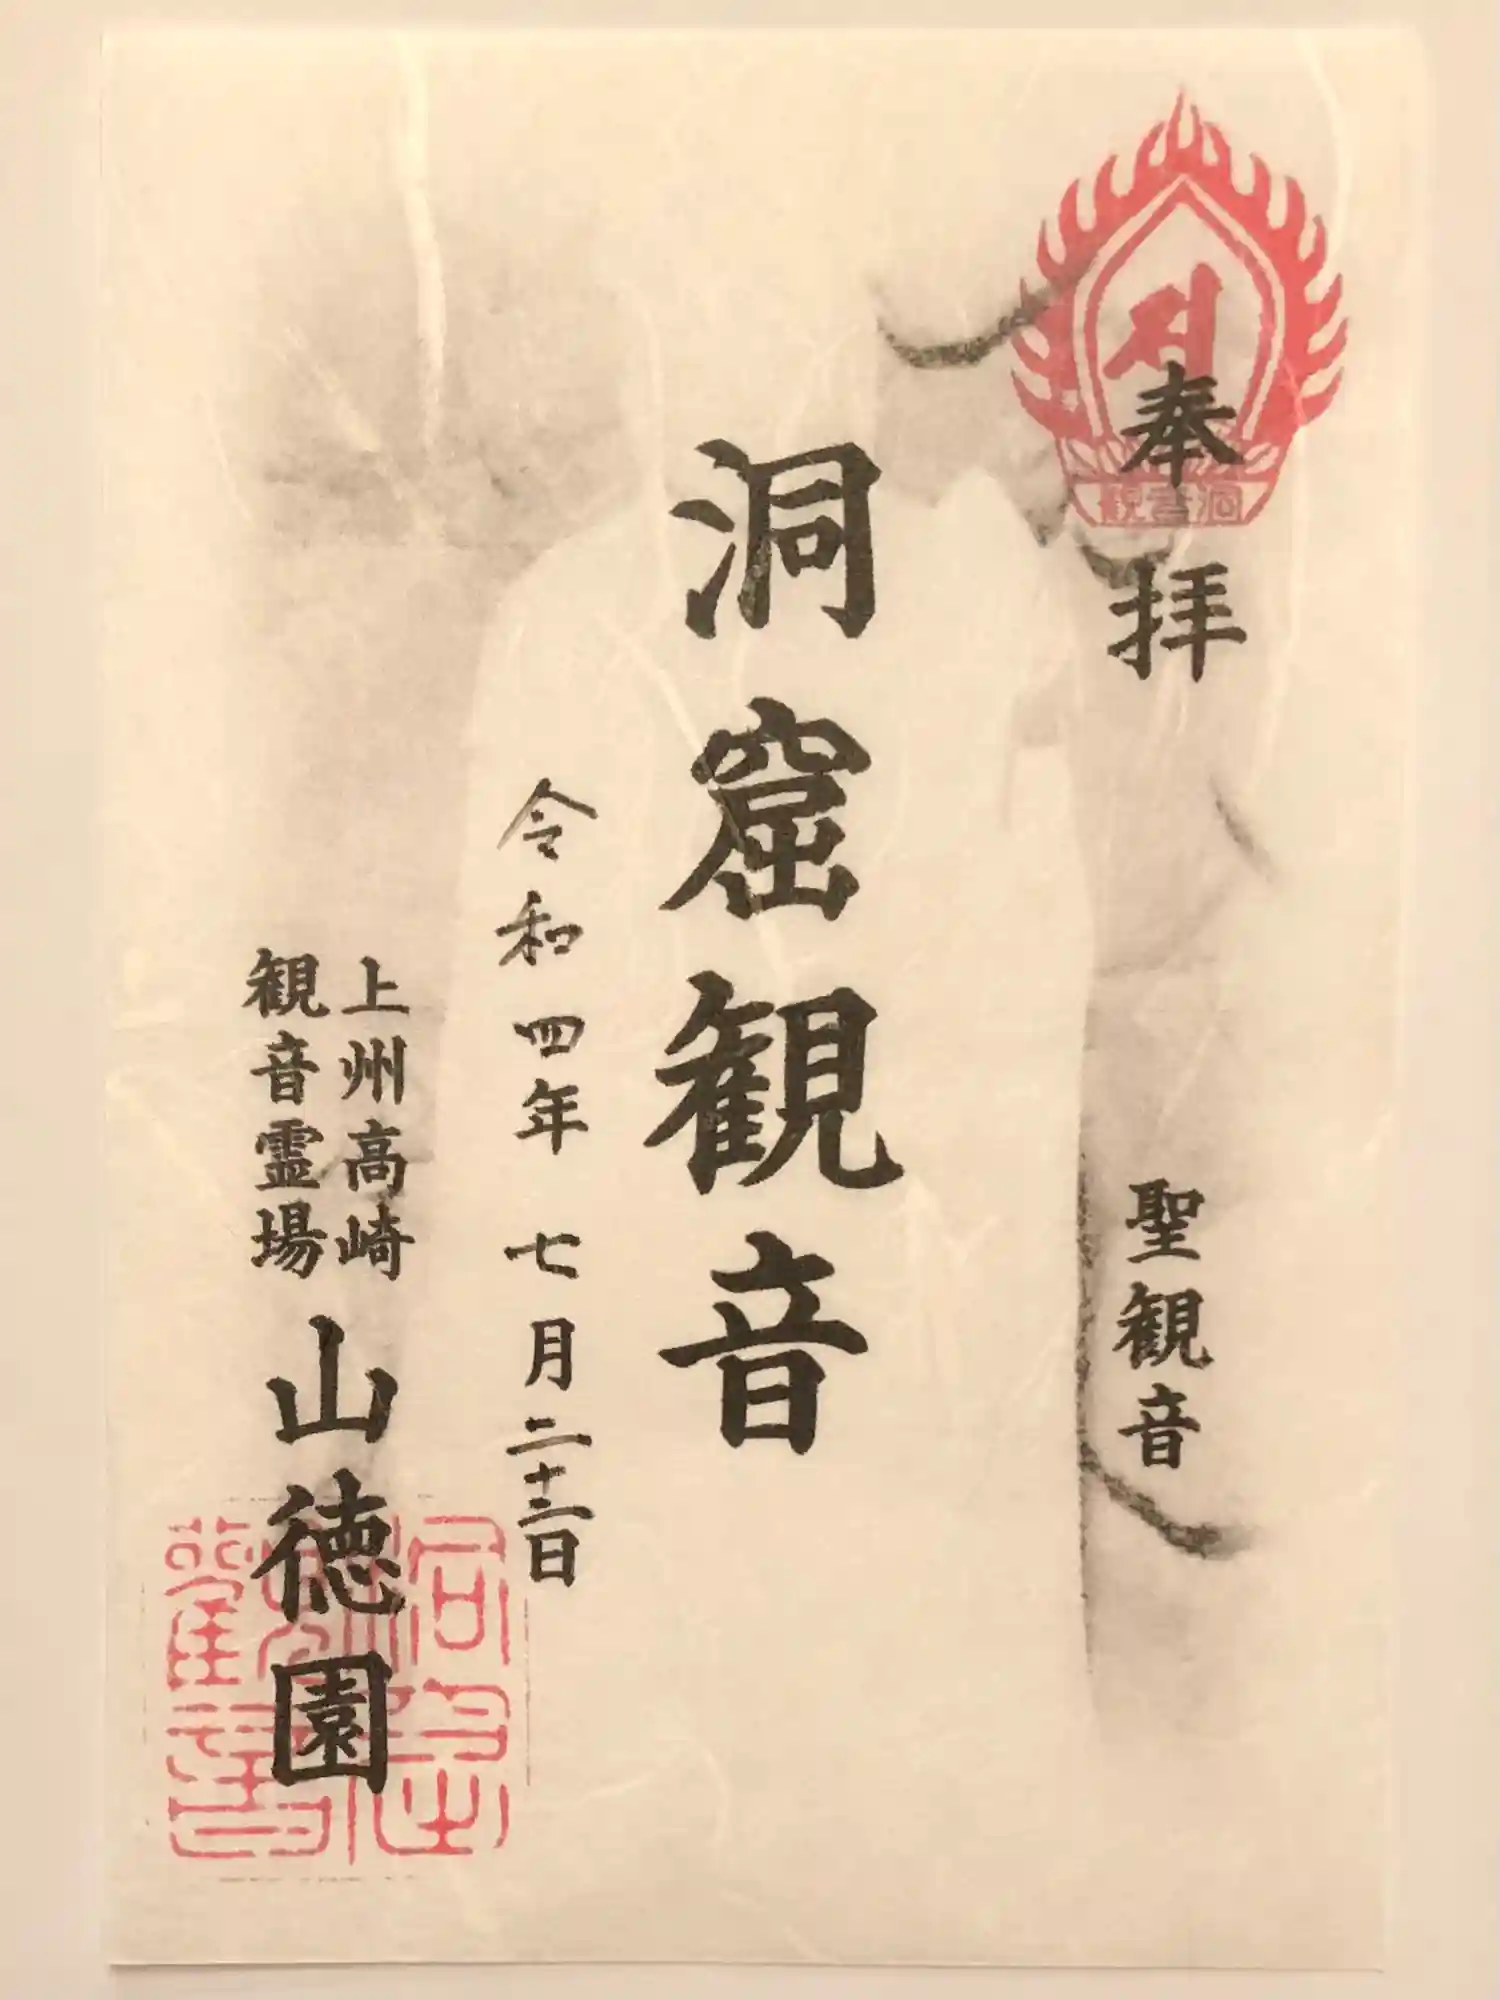 奉拝
洞窟観音
聖観音
洞窟観音
令和四年 七月二十二日
上州高崎
観音霊場
山徳園
洞窟観音